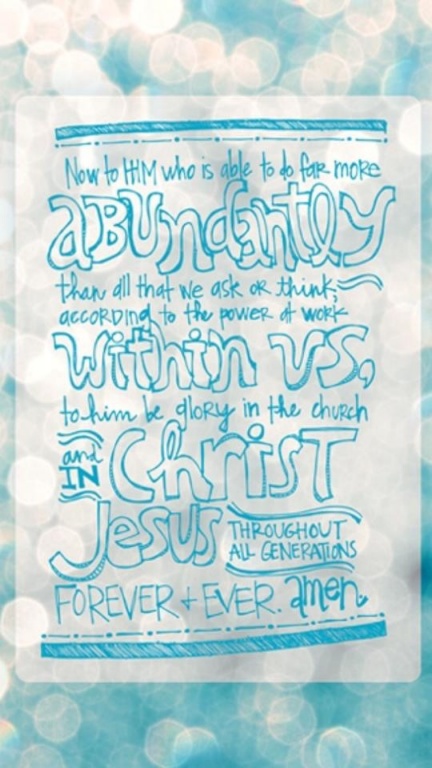 Now to HIM who is able to do far more
abundantly
than all that we ask or think,
according to the power at work
within us,
to him be glory in the church
and IN Christ
Jesus THROUGHOUT
ALL GENERATIONS
FOREVER + EVER. amen.